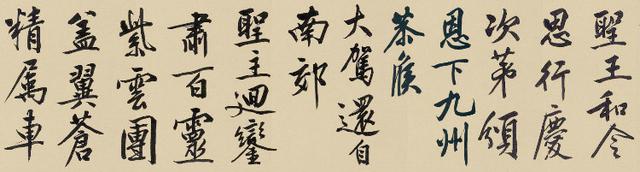 聖王和令
思行慶
次第頒
恩下九州
恭候
大駕還自
南郊
聖主迴鑾
肅百靈
紫雲團
盖翼蒼
精属車